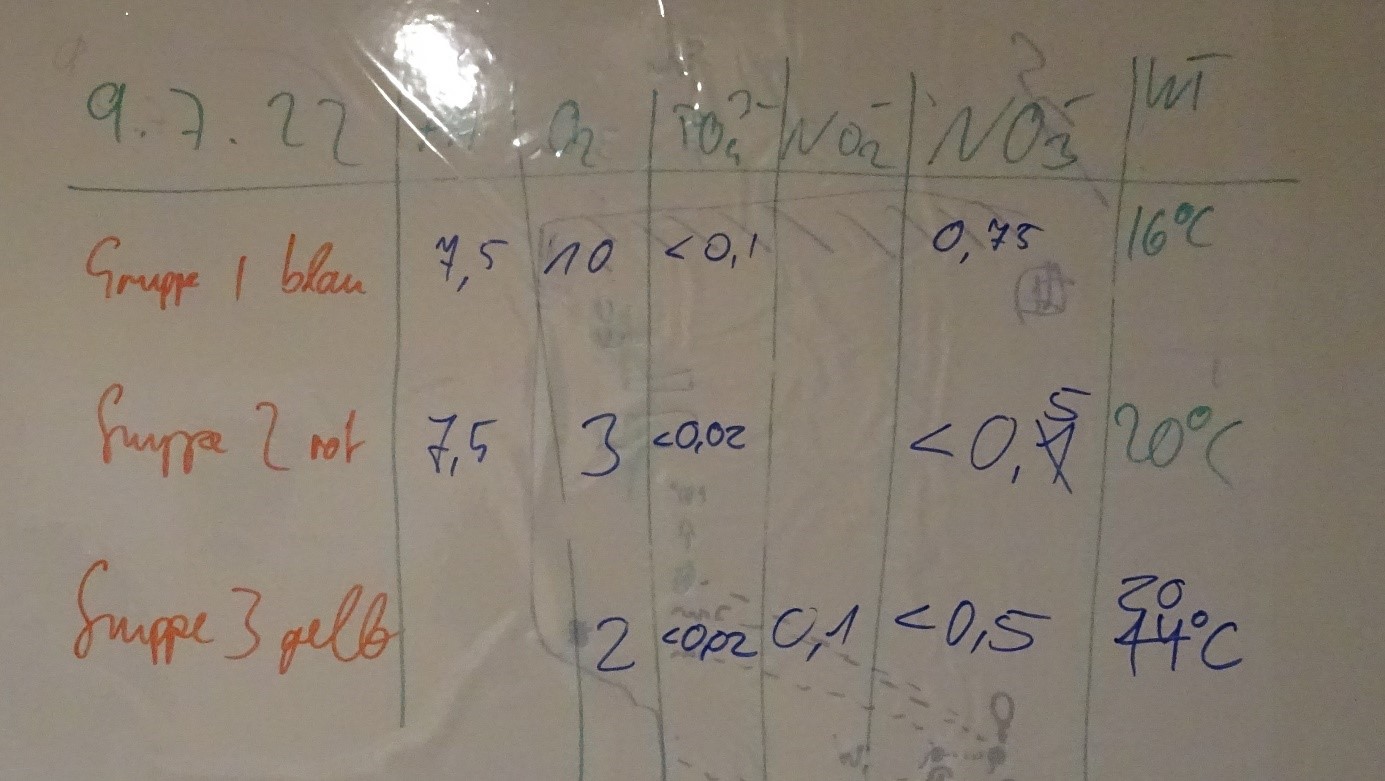 9.7.22 pH O₂ PO₄³⁻ NO₂⁻ NO₃⁻ WT
Gruppe 1 blau 7,5 10 <0,1 0,75 16°C
Gruppe 2 rot 7,5 3 <0,02 <0,5 20°C
Gruppe 3 gelb 2 <0,02 0,1 <0,5 20°C